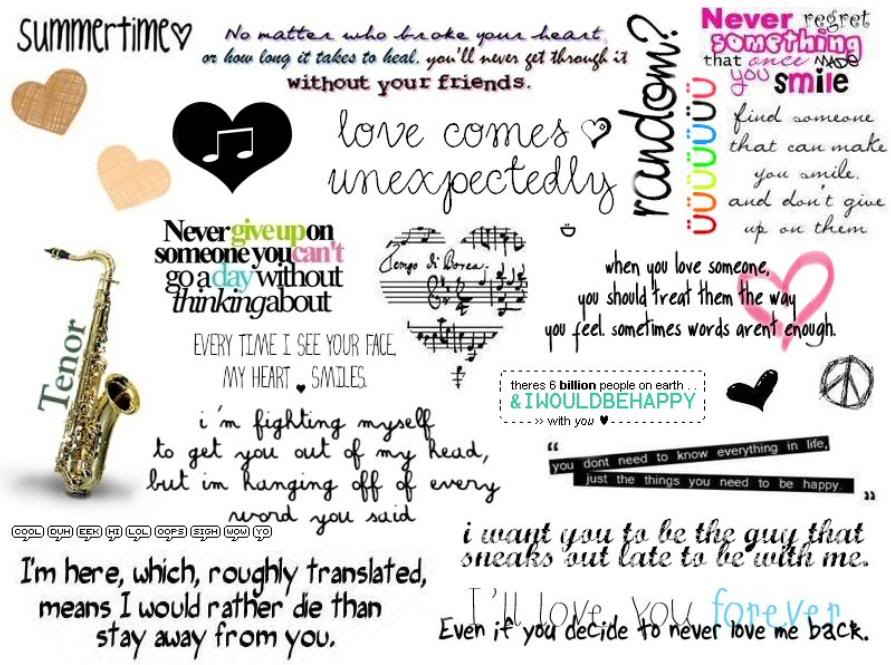 summertime
No matter who broke your heart,
or how long it takes to heal, you'll never get through it
without your friends.
random?
Never regret
something
that once MADE
you smile
üüüüüüü
love comes
unexpectedly
find someone
that can make
you smile,
and don't give
up on them
Never give up on
someone you can't
go a day without
thinking about
Tempo di Borea.
when you love someone,
you should treat them the way
you feel. sometimes words arent enough.
Tenor
EVERY TIME I SEE YOUR FACE,
MY HEART SMILES.
theres 6 billion people on earth . .
& I WOULD BE HAPPY
›› with you ♥
i'm fighting myself
to get you out of my head,
but im hanging off of every
word you said
“
you dont need to know everything in life,
just the things you need to be happy.
”
COOL DUH EEK HI LOL OOPS SIGH WOW YO
i want you to be the guy that
sneaks out late to be with me.
I'm here, which, roughly translated,
means I would rather die than
stay away from you.
I'll love you forever
Even if you decide to never love me back.